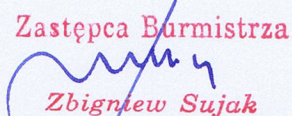 Zastępca Burmistrza
Zbigniew Sujak